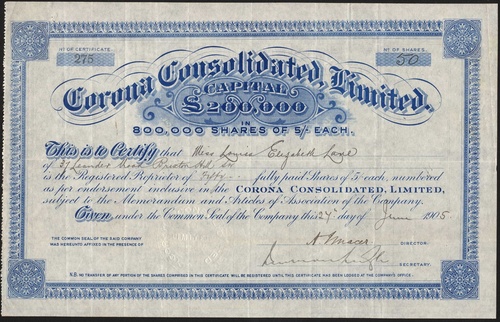 Nº OF CERTIFICATE
275
Nº OF SHARES
50
Corona Consolidated, Limited.
CAPITAL
£200,000
IN
800,000 SHARES OF 5/- EACH.
This is to Certify that Miss Louise Elizabeth Lane
of 37 Road
is the Registered Proprietor of Fifty fully paid Shares of 5/- each, numbered
as per endorsement inclusive in the CORONA CONSOLIDATED, LIMITED,
subject to the Memorandum and Articles of Association of the Company.
Given under the Common Seal of the Company this 24th day of June 1905
THE COMMON SEAL OF THE SAID COMPANY
WAS HEREUNTO AFFIXED IN THE PRESENCE OF
DIRECTOR.
SECRETARY.
N.B. NO TRANSFER OF ANY PORTION OF THE SHARES COMPRISED IN THIS CERTIFICATE WILL BE REGISTERED UNTIL THIS CERTIFICATE HAS BEEN LODGED AT THE COMPANY'S OFFICE.